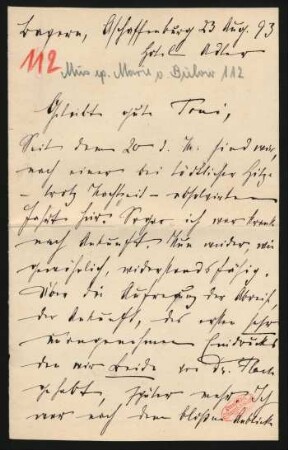 Bayern, Aschaffenburg 23 Aug. 93
Hotel Adler
112
Mus. ep. Marie v. Bülow 112
Geliebte gute Toni,
Seit dem 20 d. M. sind wir,
nach einer bei tödtlicher Hitze
– trotz Nachtzeit – absolvirten
Fahrt hier. Sogar ich war krank
nach Ankunft. Nun wieder, wie
gewöhnlich, widerstandsfähig.
Über die Aufregung der Abreise,
der Ankunft, des ersten sehr
unangenehmen Eindrucks
den wir beide von Dr.
gehabt, später mehr. Ich
war nach dem bloßen Anblick